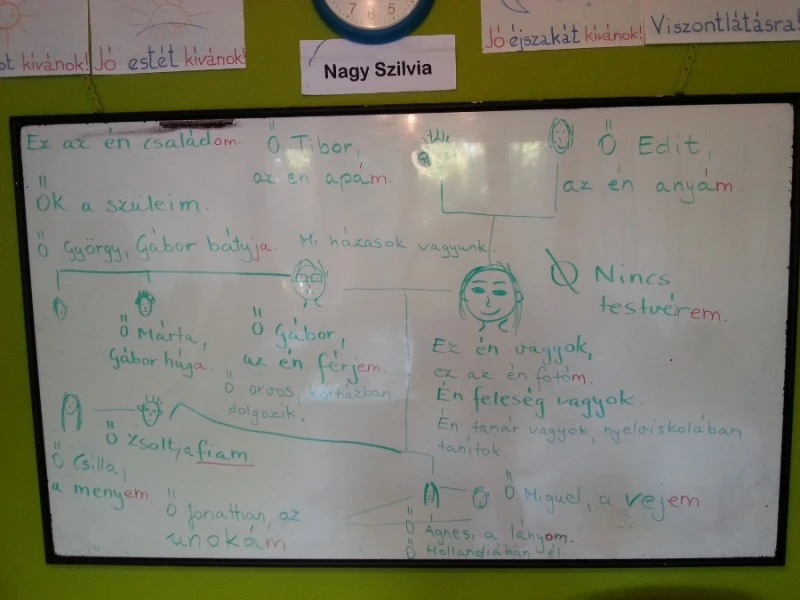 kívánok!
Jó estét kívánok!
8 6 5
Jó éjszakát kívánok!
Viszontlátásra!
Nagy Szilvia
Ez az én családom.
Ő Tibor,
az én apám.
Ő Edit,
az én anyám.
Ők a szüleim.
Ő György, Gábor bátyja.
Mi házasok vagyunk.
Nincs
testvérem.
Ő Márta,
Gábor húga.
Ő Gábor,
az én férjem.
Ő orvos, kórházban
dolgozik.
Ez én vagyok,
ez az én fotóm.
Én feleség vagyok.
Én tanár vagyok, nyelviskolában
tanítok.
Ő Zsolt, a fiam
Ő Csilla,
a menyem.
Ő Jonathan, az
unokám
Ő Miguel, a vejem.
Ő Ágnes, a lányom.
Ő Hollandiában él.